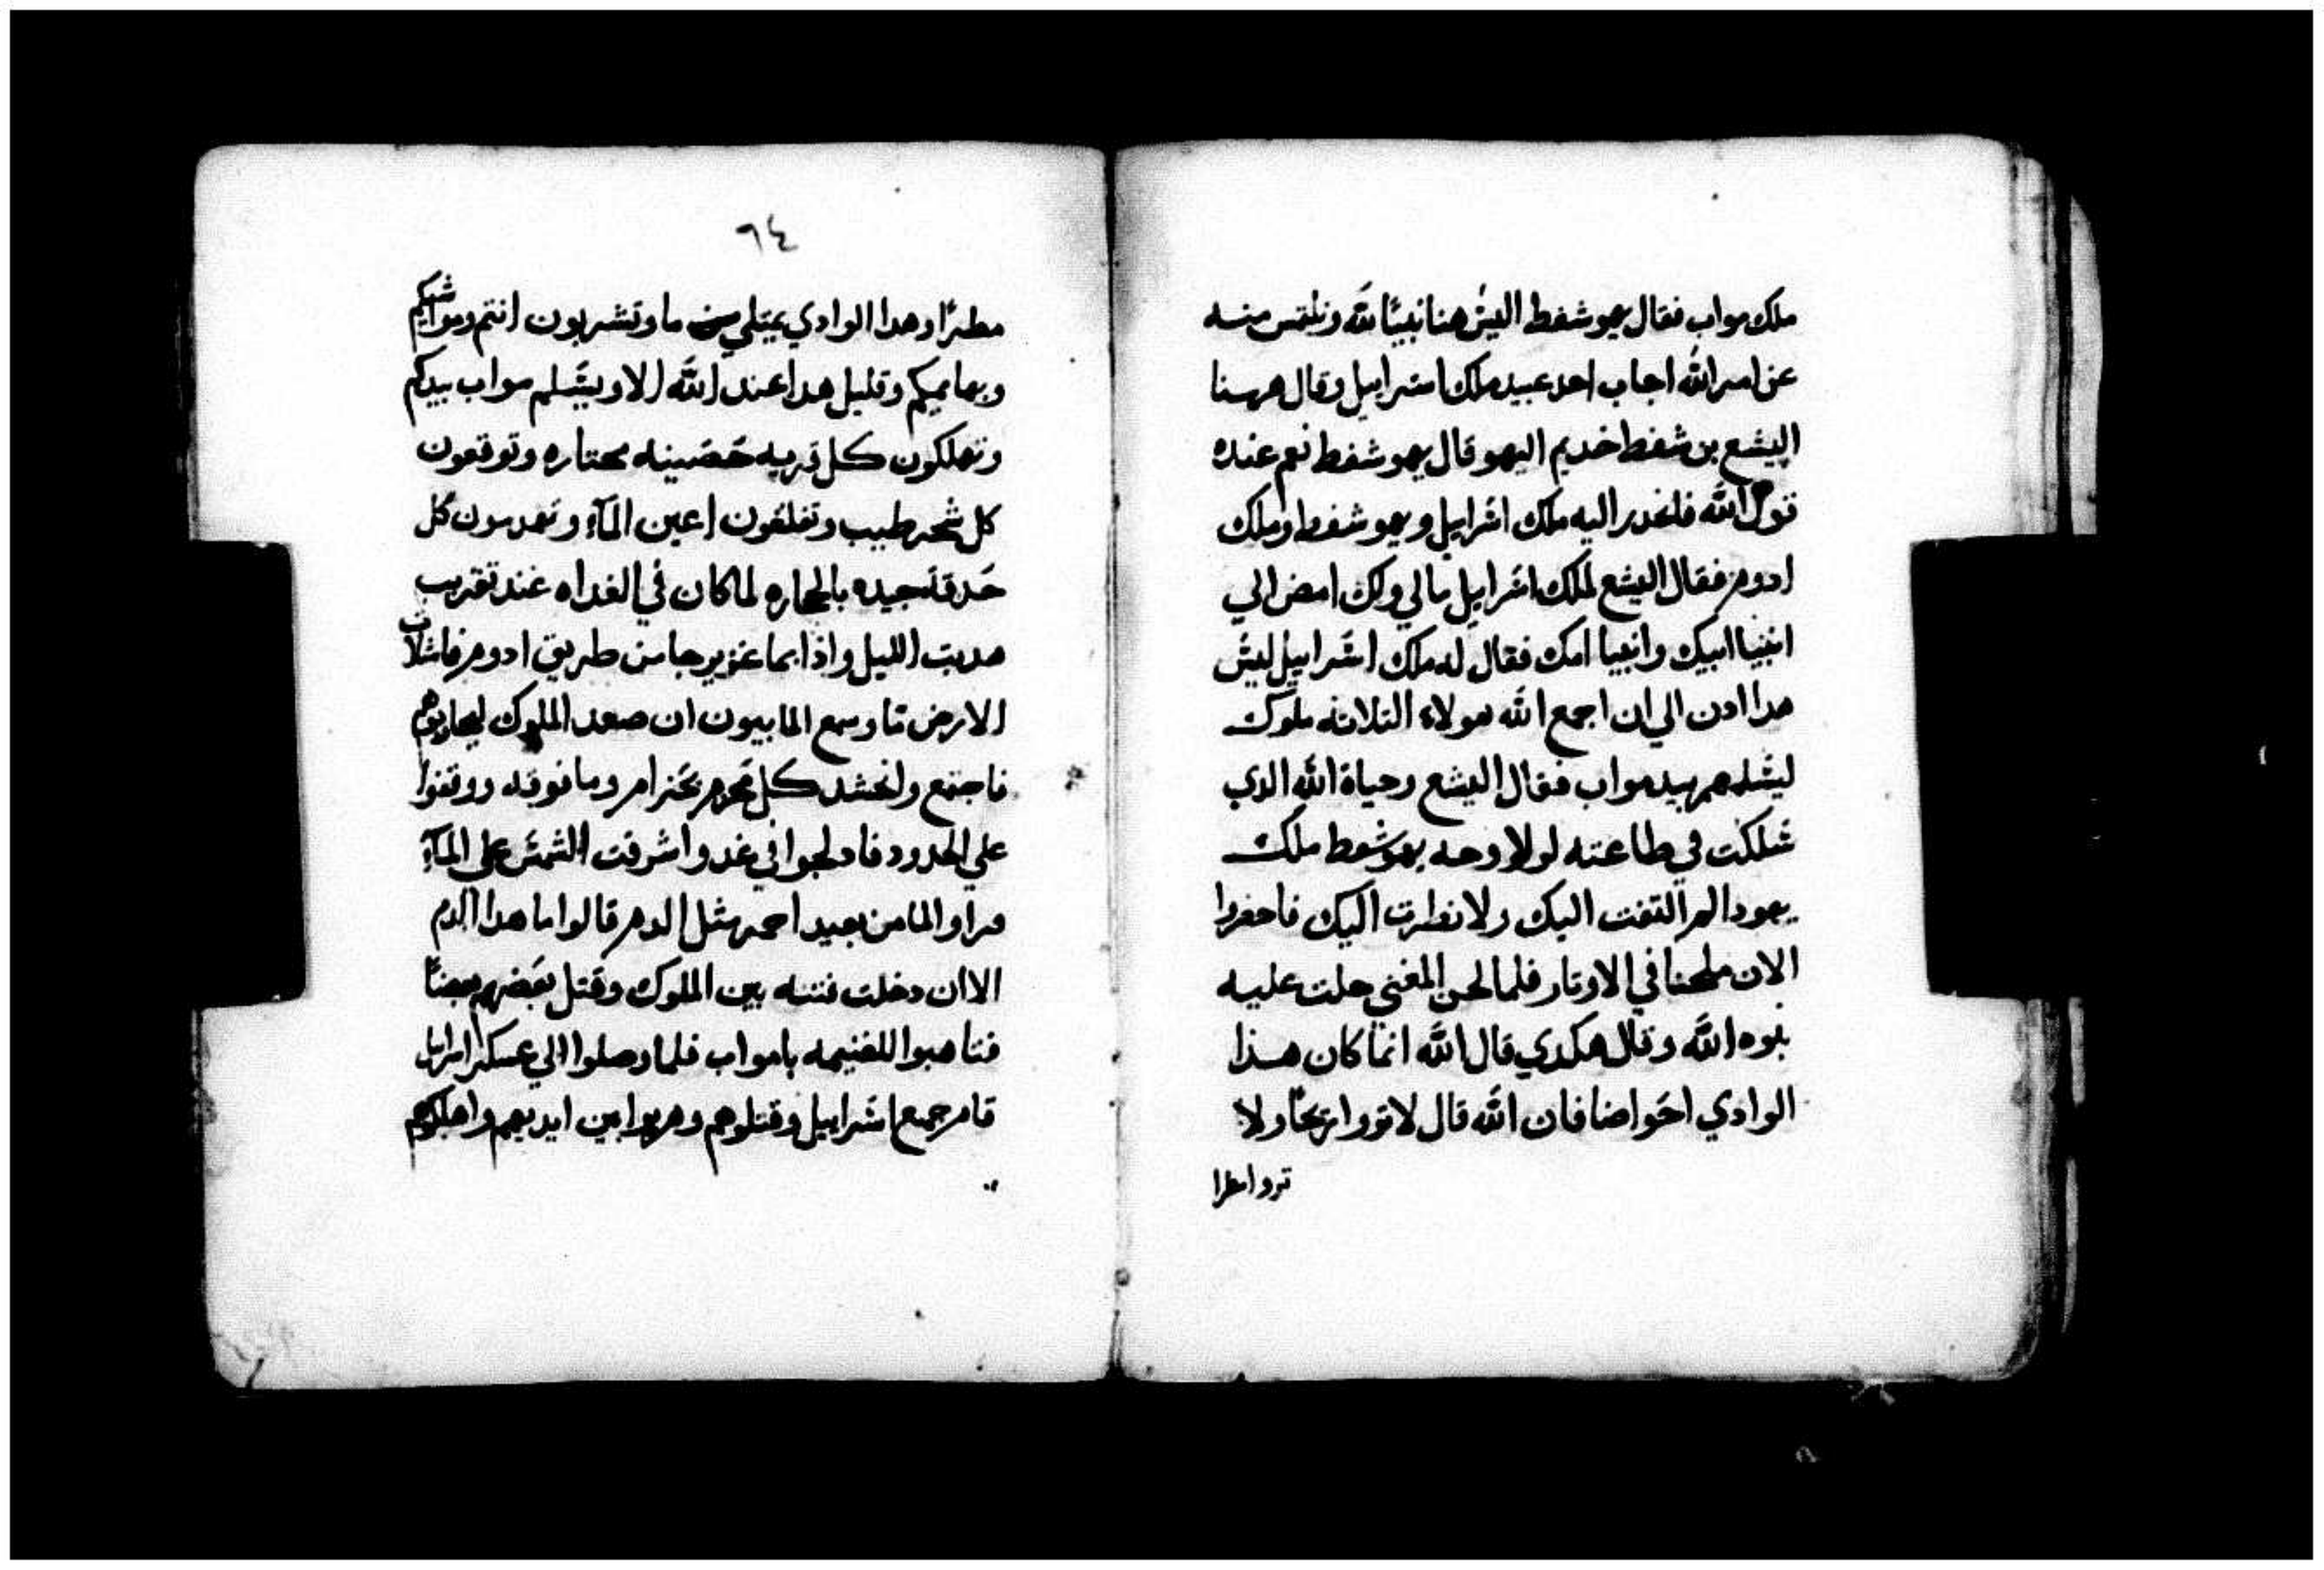 ملك مواب فقال يهوشفط اليش هنا نبيًا لله ونلتمس منه
عن امر الله اجاب احد عبيد ملك اسرابيل وقال ههنا
اليشع بن شفط خديم اليهو قال يهوشفط نعم عنده
قول الله فانحدر اليه ملك اسرابيل ويهوشفط وملك
ادوم فقال اليشع لملك اسرابيل مالي ولك امض الي
انبيا ابيك وانبيا امك فقال له ملك اسرابيل ليس
هدا ادن الي ان اجمع الله هولاء التلاته ملوك
ليسلمهم بيد مواب فقال اليشع وحياة الله الدي
سلكت في طاعته لولا وجه يهوشفط ملك
يهودا لم التفت اليك ولا نظرت اليك فاحضروا
الان ملحنا في الاوتار فلما لحن المغني حلت عليه
نبوه الله وقال هكدي قال الله انما كان هذا
الوادي احواضا فان الله قال لا تروا ريحًا ولا
تروا مطرا
٦٤
مطرًا وهدا الوادي يمتلي من ما وتشربون انتم ومواشيكم
وبهايمكم وقليل هدا عند الله الا ويسلم مواب بيدكم
وتهلكون كل قريه حصينه مختاره وتوقعون
كل شجر طيب وتغلقون اعين المآء وتهدمون كل
حدقة جيده بالحجاره لما كان في الغداه عند تقريب
هديت الليل واذا بما غزير جا من طريق ادوم فامتلات
الارض ما وسمع المابيون ان صعد الملوك ليحاربوهم
فاجتمع وانحشد كل محزم بحزام وما فوقه ووقفوا
علي الحدود فادلجوا في غد واشرقت الشمس علي المآء
فراوا الما من بعيد احمر مثل الدم قالوا ما هدا الدم
الا ان دخلت فتنه بين الملوك وقتل بعضهم بعضًا
فتاهبوا للغنيمه يا مواب فلما وصلوا الي عسكر اسرايل
قام جميع اسرابيل وقتلوهم وهربوا من ايديهم واهلكوهم